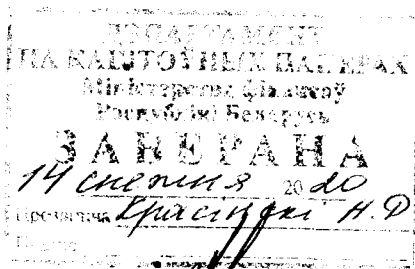 ДЭПАРТАМЕНТ
ПА КАШТОЎНЫХ ПАПЕРАХ
Міністэрства фінансаў
Рэспублікі Беларусь
ЗАВЕРАНА
14 снежня 2020
Прозвішча Красінскі Н.Ф
Подпіс